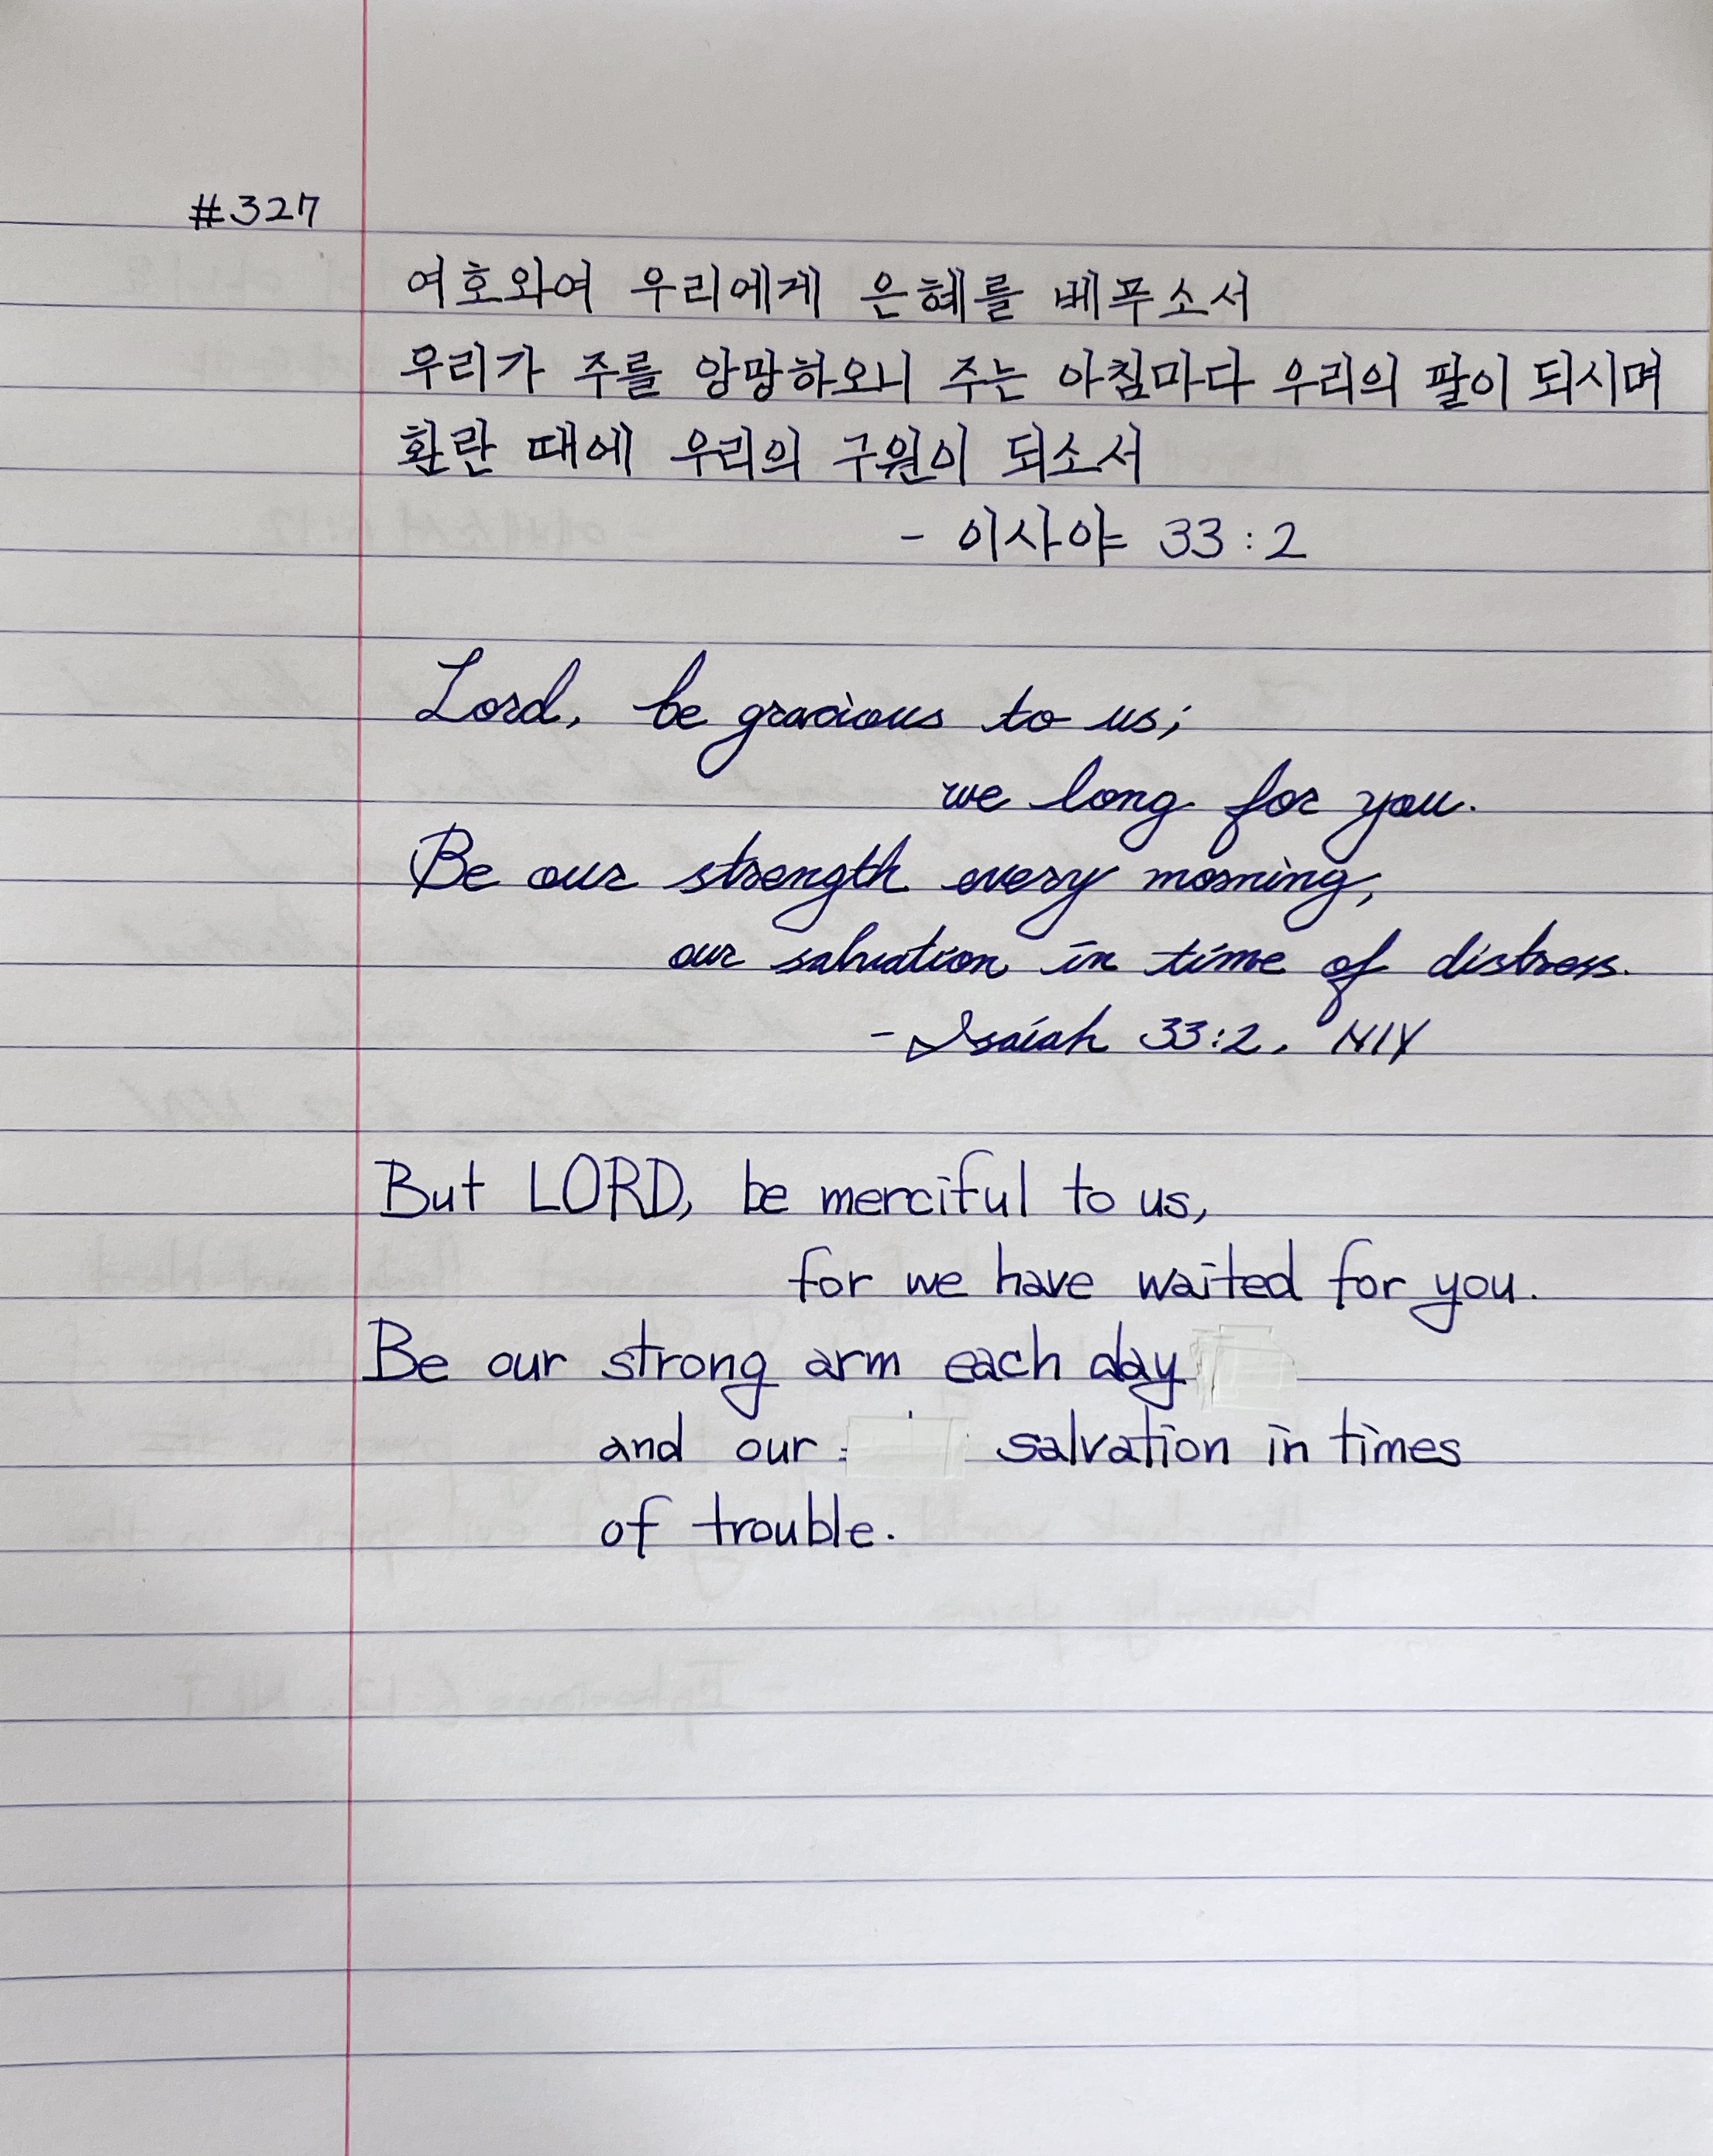 #327
여호와여 우리에게 은혜를 베푸소서
우리가 주를 앙망하오니 주는 아침마다 우리의 팔이 되시며
환란 때에 우리의 구원이 되소서
- 이사야 33:2
Lord, be gracious to us;
we long for you.
Be our strength every morning,
our salvation in time of distress.
- Isaiah 33:2, NIV
But LORD, be merciful to us,
for we have waited for you.
Be our strong arm each day
and our salvation in times
of trouble.